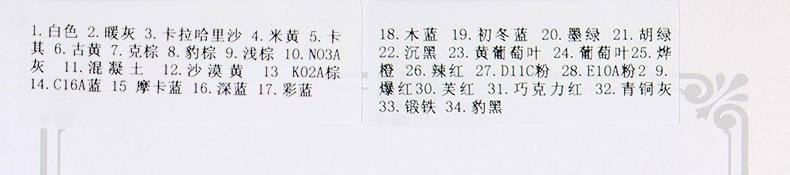 1.白色 2.暖灰 3.卡拉哈里沙 4.米黄 5.卡
其 6.古黄 7.克棕 8.豹棕 9.浅棕 10.NO3A
灰 11.混凝土 12.沙漠黄 13 K02A棕
14.C16A蓝 15 摩卡蓝 16.深蓝 17.彩蓝
18.木蓝 19.初冬蓝 20.墨绿 21.胡绿
22.沉黑 23.黄葡萄叶 24.葡萄叶25.烨
橙 26.辣红 27.D11C粉 28.E10A粉2 9.
爆红30.芙红 31.巧克力红 32.青铜灰
33.锻铁 34.豹黑